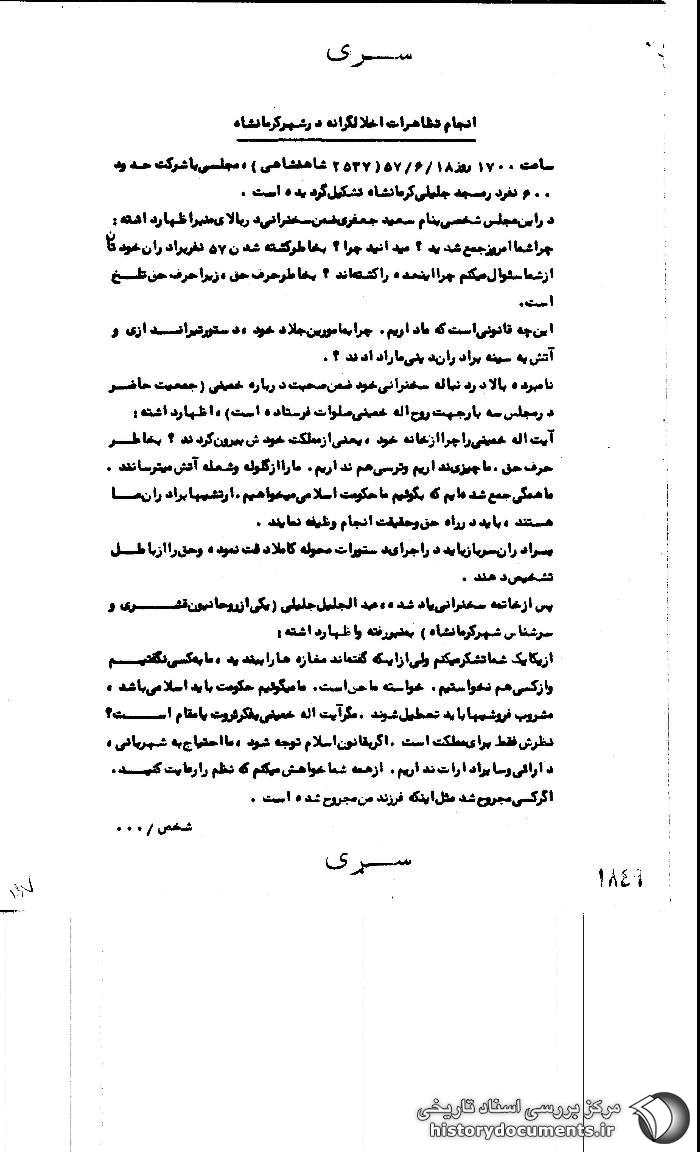 سری
انجام تظاهرات اخلالگرانه در شهر کرمانشاه
ساعت ۱۷۰۰ روز ۱۸/۶/۵۷ (۲۵۳۷ شاهنشاهی)، مجلسی با شرکت حدود
۶۰۰ نفر در مسجد جلیلی کرمانشاه تشکیل گردیده است.
در این مجلس شخصی بنام سعید جعفری ضمن سخنرانی در بالای منبر اظهار داشته:
چرا شما امروز جمع شدید؟ میدانید چرا؟ بخاطر کشته شدن ۵۷ نفر برادران خودتان
از شما سئوال میکنم چرا اینعده را کشته‌اند؟ بخاطر حرف حق، زیرا حرف حق تلخ
است.
این چه قانونی است که ما داریم. چرا بمامورین جلاد خود، دستور تیراندازی و
آتش به سینه برادران دینی ما را دادند؟.
نامبرده بالا در دنباله سخنرانی خود ضمن صحبت درباره خمینی (جمعیت حاضر
در مجلس سه بار جهت روح اله خمینی صلوات فرستاده است)، اظهار داشته:
آیت اله خمینی را چرا از خانه خود، یعنی از مملکت خودش بیرون کردند؟ بخاطر
حرف حق. ما چیزی نداریم و ترسی هم نداریم. ما را از گلوله و شعله آتش میترسانند.
ما همگی جمع شده‌ایم که بگوئیم ما حکومت اسلامی میخواهیم. ارتشیها برادران ما
هستند، باید در راه حق و حقیقت انجام وظیفه نمایند.
برادران سرباز باید در اجرای دستورات محوله کاملا دقت نموده و حق را از باطل
تشخیص دهند.
پس از خاتمه سخنرانی یاد شده، عبدالجلیل جلیلی (یکی از روحانیون قشری و
سرشناس شهر کرمانشاه) بمنبر رفته و اظهار داشته:
از یکایک شما تشکر میکنم ولی از اینکه گفته‌اند مغازه ها را ببندید، ما به کسی نگفتیم
و از کسی هم نخواستیم. خواسته ما حق است. ما میگوئیم حکومت باید اسلامی باشد،
مشروب فروشیها باید تعطیل شوند. مگر آیت اله خمینی بفکر ثروت یا مقام است؟
نظرش فقط برای مملکت است. اگر بقانون اسلام توجه شود، ما احتیاج به شهربانی،
دارائی و سایر ادارات نداریم. از همه شما خواهش میکنم که نظم را رعایت کنید.
اگر کسی مجروح شد مثل اینکه فرزند من مجروح شده است.
شخص /۰۰۰
سری
۱۸٤٦
مرکز بررسی اسناد تاریخی
historydocuments.ir